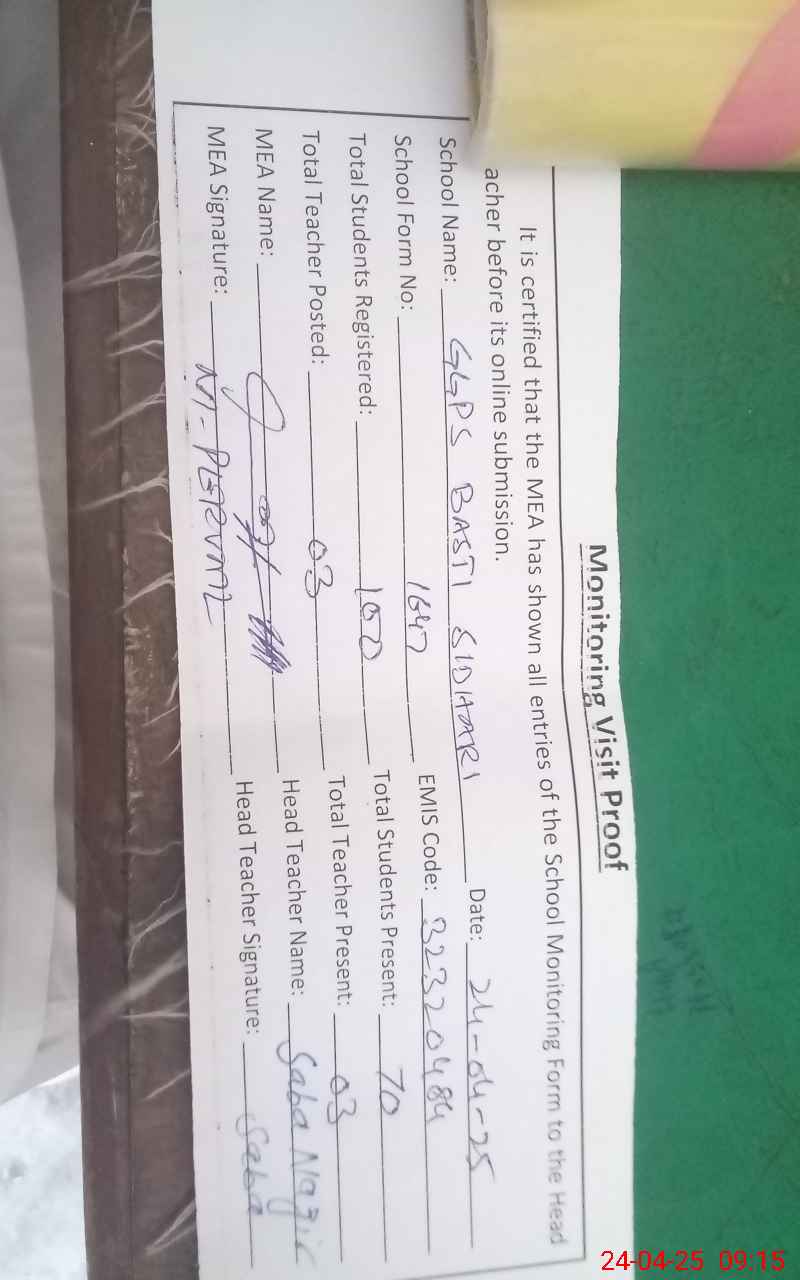 Monitoring Visit Proof
It is certified that the MEA has shown all entries of the School Monitoring Form to the Head
acher before its online submission.
School Name: GGPS BASTI SIDHARI Date: 24-04-25
School Form No: 1647 EMIS Code: 32320484
Total Students Registered: Total Students Present: 70
Total Teacher Posted: 03 Total Teacher Present: 03
MEA Name: Head Teacher Name: Saba
MEA Signature: Head Teacher Signature: Saba
24-04-25 09:15